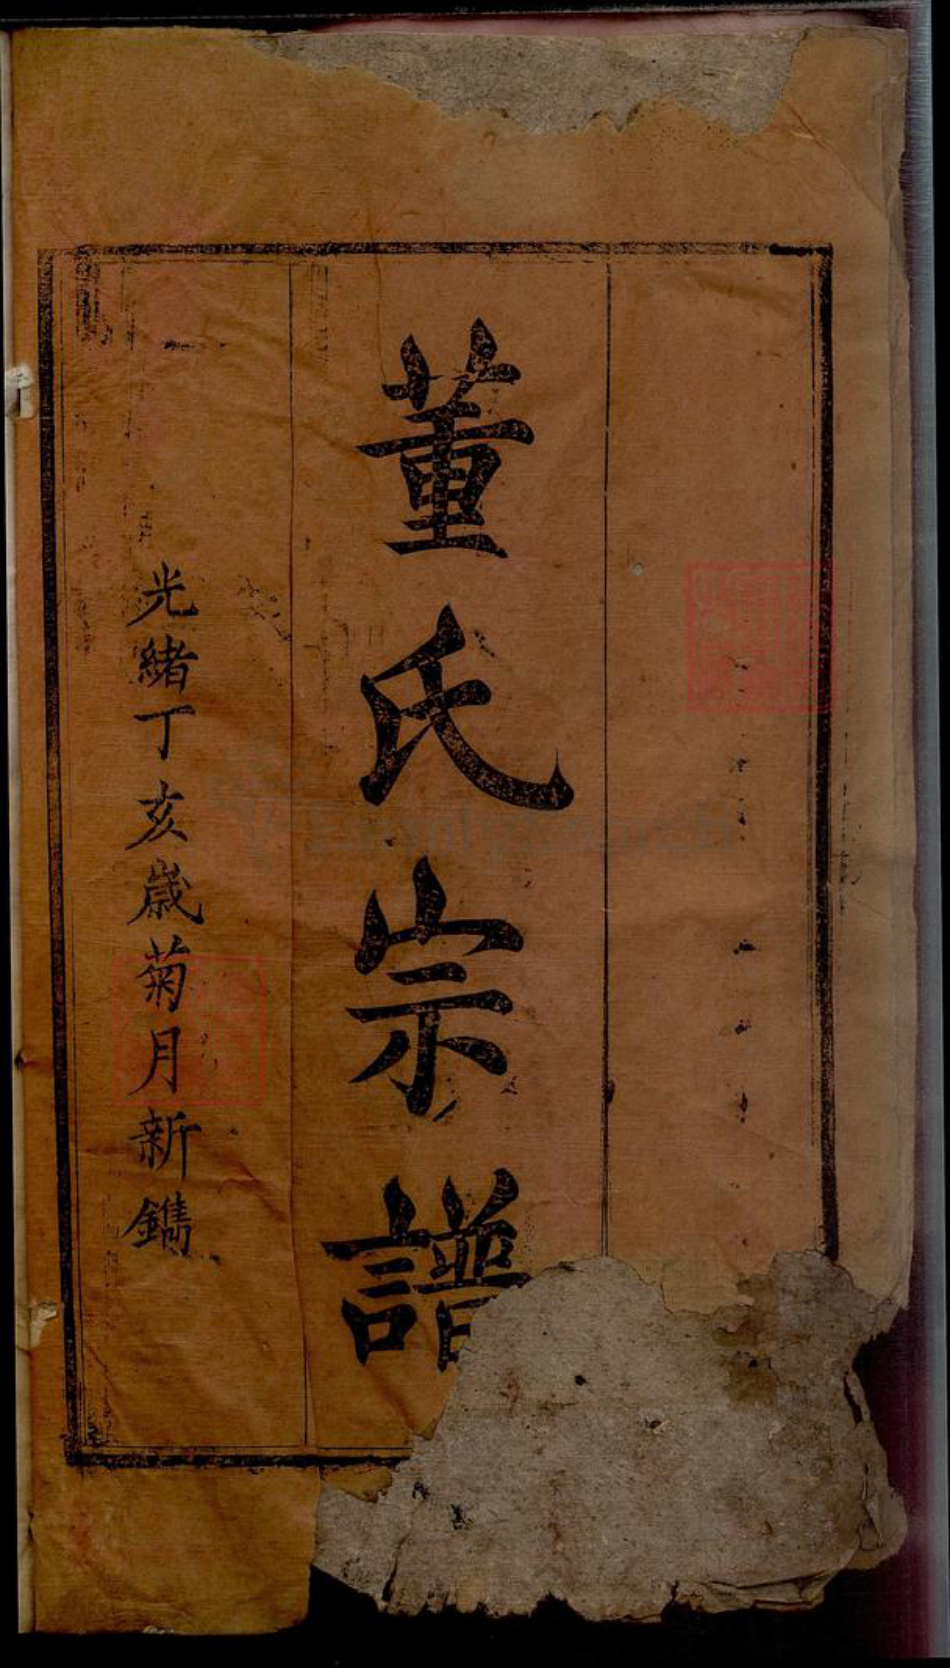 董氏宗譜
光緒丁亥歲菊月新鐫